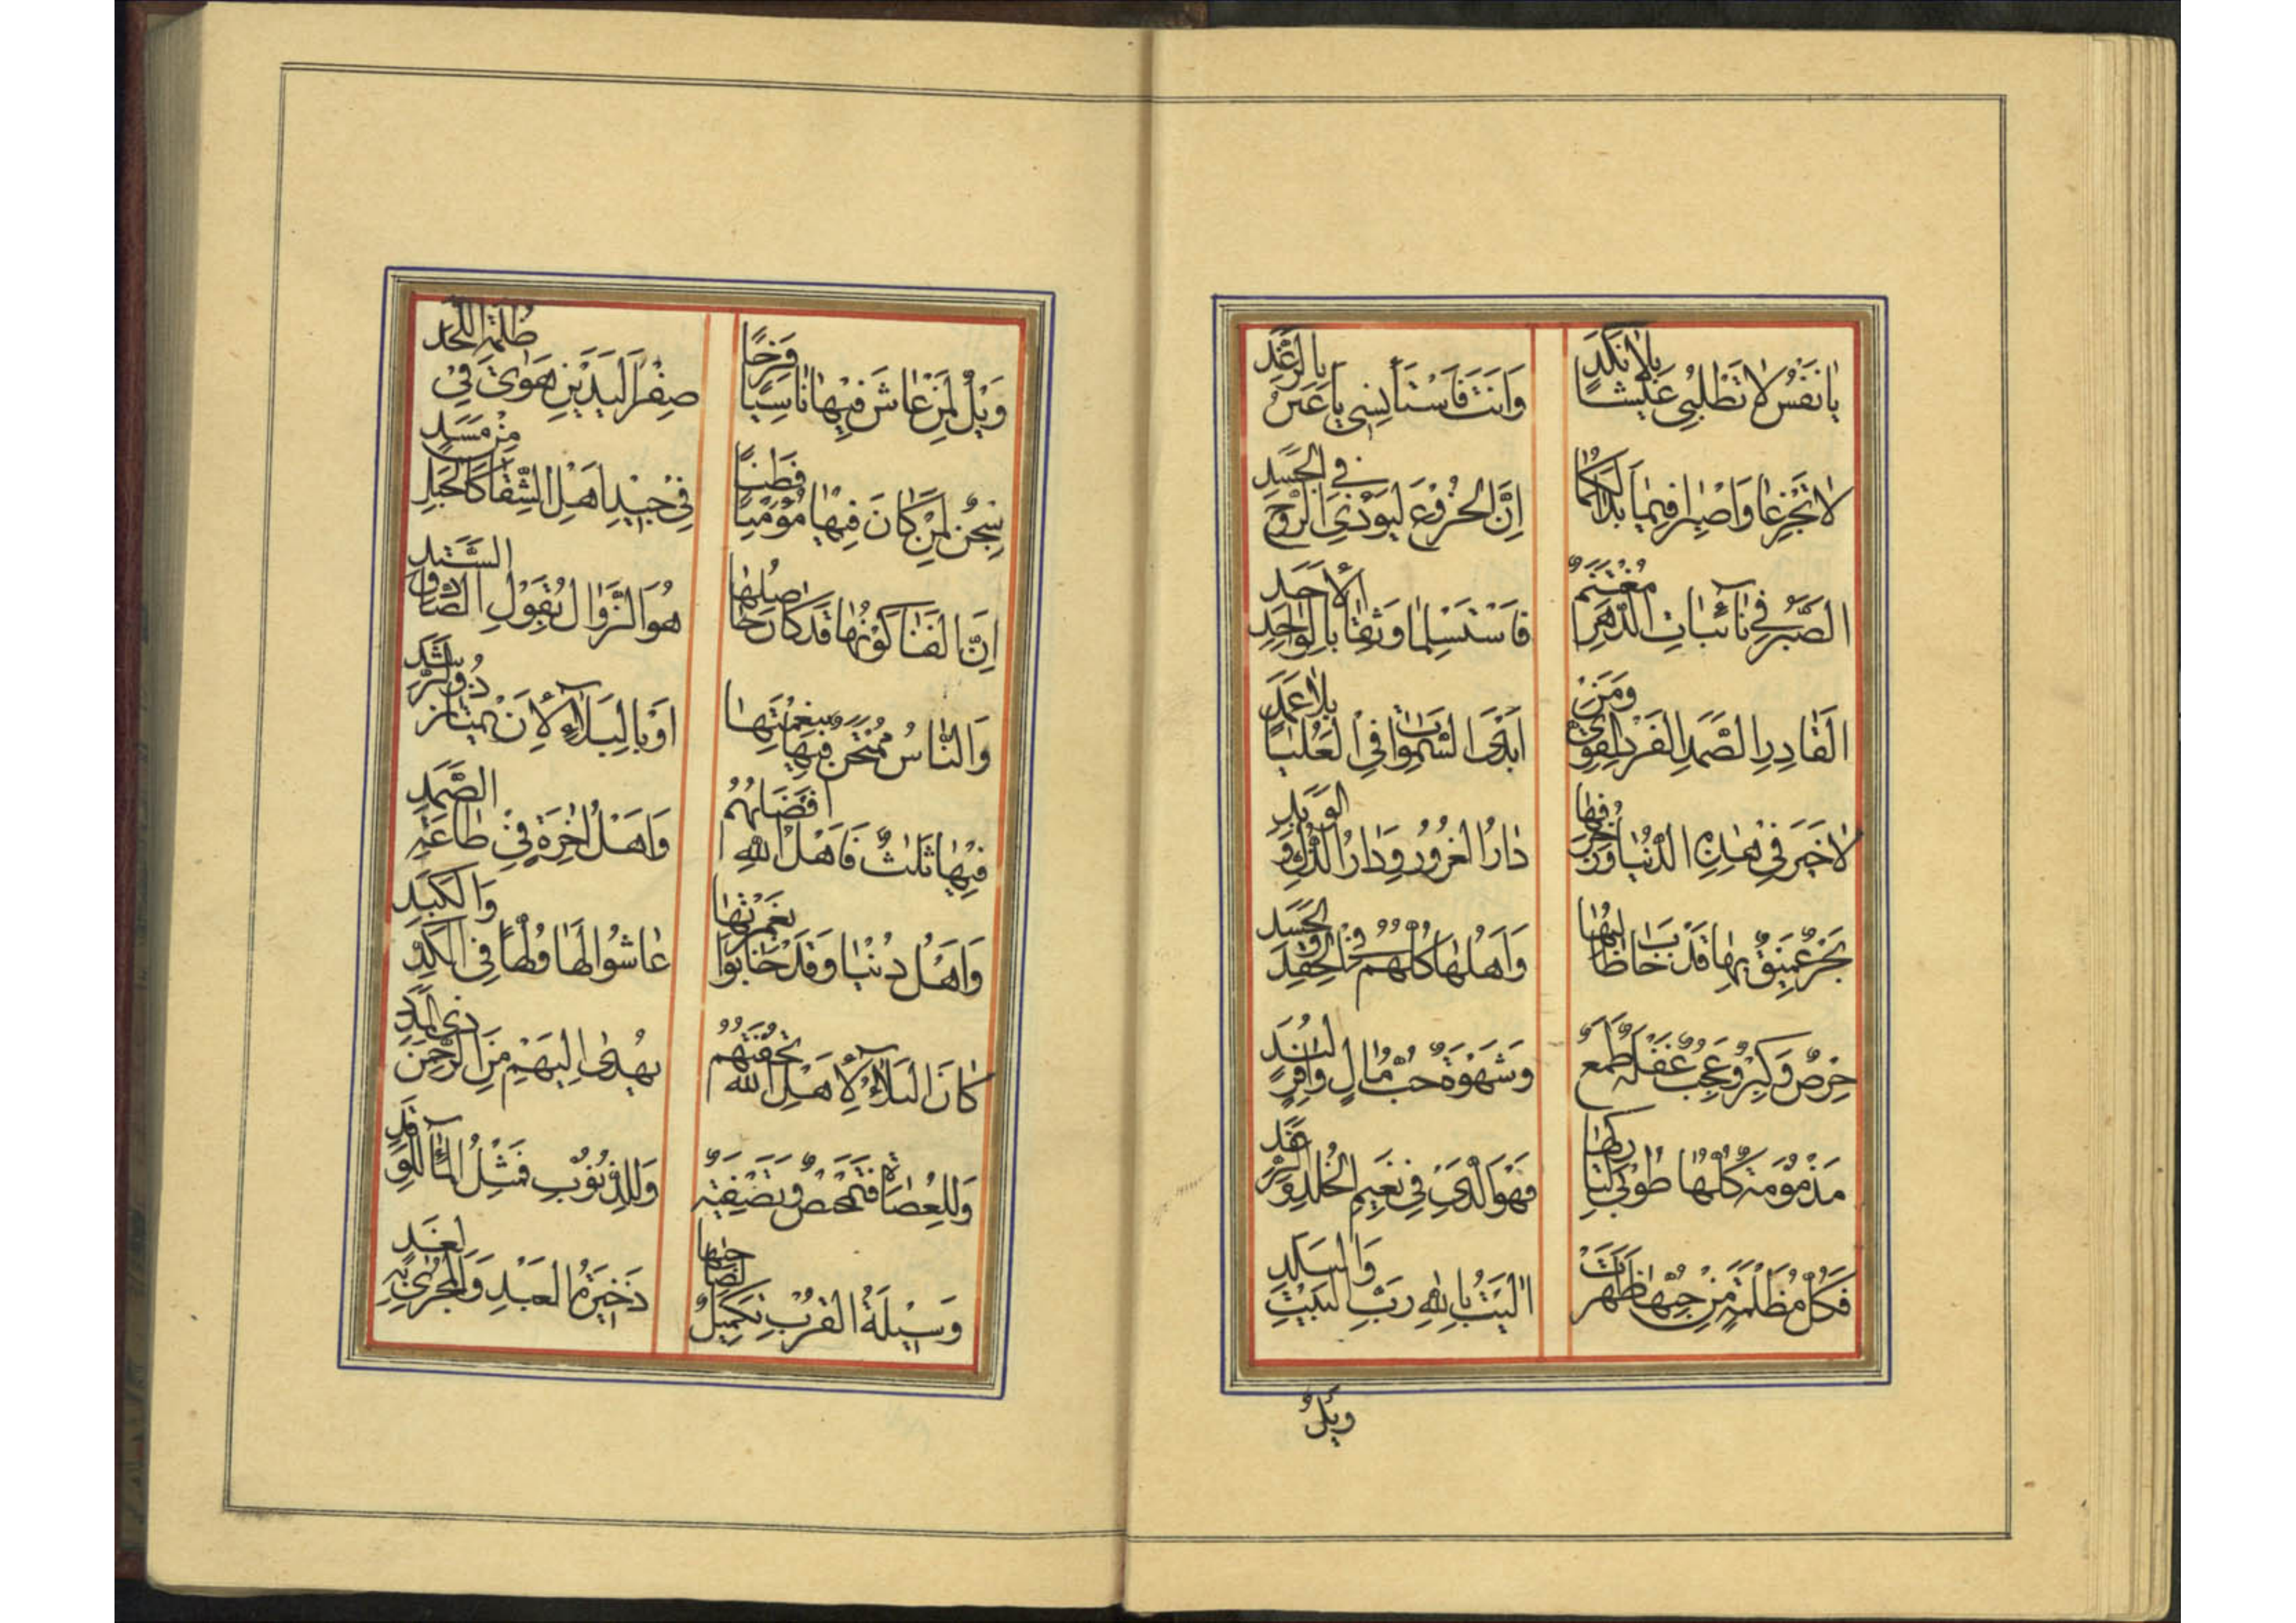 يٰا نَفْسُ لٰا تَطْلُبِي عَيْشًا بِلٰا نَكَدٍ
وَاَنْتَ فَاسْتَأْنِسِي يٰا عَيْنُ بِالرَّغَدِ
لٰا تَجْزَعٰا وَاصْبِرٰا فِيمٰا بَدٰا لَكُمٰا
اِنَّ الْجُزُوْعَ لَيُؤْذِي الرُّوْحَ فِي الْجَسَدِ
الصَّبْرُ فِي نٰائِبٰاتِ الدَّهْرِ مُغْتَنَمٌ
فَاسْتَسْلِمٰا وَثِقٰا بِالْوٰاحِدِ الْاَحَدِ
الْقٰادِرِ الصَّمَدِ الْفَرْدِ الْقَوِيِّ وَمَنْ
اَبْدَى السَّمٰوٰاتِ فِي الْعُلْيٰا بِلٰا عَمَدِ
لٰا خَيْرَ فِي هٰذِهِ الدُّنْيٰا وَزُخْرُفِهٰا
دٰارُ الْغُرُورِ وَدٰارُ الذُّلِّ وَالْوَبَدِ
بَحْرٌ عَمِيْقٌ بِهٰا قَدْ خٰابَ طٰالِبُهٰا
وَاَهْلُهٰا كُلُّهُمْ فِي الْحِقْدِ وَالْحَسَدِ
حِرْصٌ وَكِبْرٌ وَعُجْبٌ غَفْلَةٌ طَمَعٌ
وَشَهْوَةٌ حُبُّ مٰالٍ وٰافِرٍ لُبَدِ
مَذْمُوْمَةٌ كُلُّهٰا طُوْبٰى لِتٰارِكِهٰا
فَهْوَ الَّذِي فِي نَعِيْمِ الْخُلْدِ وَالرَّغَدِ
فَكُلُّ مُظْلَمَةٍ مِنْ حُبِّهٰا ظَهَرَتْ
اٰلَيْتُ بِاللّٰهِ رَبِّ الْبَيْتِ وَالْبَلَدِ
وَيْلٌ
وَيْلٌ لِمَنْ عٰاشَ فِيْهٰا نٰاسِيًا فَرِحًا
صِفْرَ الْيَدَيْنِ هَوٰى فِي ظُلْمَةِ اللَّحَدِ
سِجْنٌ لِمَنْ كٰانَ فِيْهٰا مُؤْمِنًا فَطِنًا
فِي جِيْدِ اَهْلِ الشِّقٰا كَالْحَبْلِ مِنْ مَسَدِ
اِنَّ الْفَنٰا كَوْنُهٰا قَدْ كٰانَ حٰاصِلُهٰا
هُوَ الزَّوٰالُ بِقَوْلِ الصّٰادِقِ السَّنَدِ
وَالنّٰاسُ مُمْتَحَنٌ فِيْهٰا بِنِعْمَتِهٰا
اَوْ بِالْبَلٰاءِ لِاَنْ يَمْتٰازَ ذُو الرَّشَدِ
فِيْهٰا ثَلٰثٌ فَاَهْلُ اللّٰهِ اَفْضَلُهُمْ
وَاَهْلُ اٰخِرَةٍ فِي طٰاعَةِ الصَّمَدِ
وَاَهْلُ دُنْيٰا وَقَدْ خٰابُوا بِغَمْرَتِهٰا
عٰاشُوا لَهٰا وَلَهًا فِي الْكَدِّ وَالْكَبَدِ
كٰانَ الْبَلٰاءُ لِاَهْلِ اللّٰهِ تُحْفَتُهُمْ
يُهْدٰى اِلَيْهِمْ مِنَ الرَّحْمٰنِ ذِي الْمَدَدِ
وَلِلْعُصٰاةِ فَتَمْحِيْصٌ وَتَصْفِيَةٌ
وَلِلذُّنُوْبِ فَمِثْلُ الْمٰاءِ لِلْوَقَدِ
وَسِيْلَةُ الْقُرْبِ تَكْمِيْلٌ لِصٰاحِبِهٰا
ذَخِيْرَةُ الْعَبْدِ وَالْمُجْزٰى بِهِ لِغَدِ